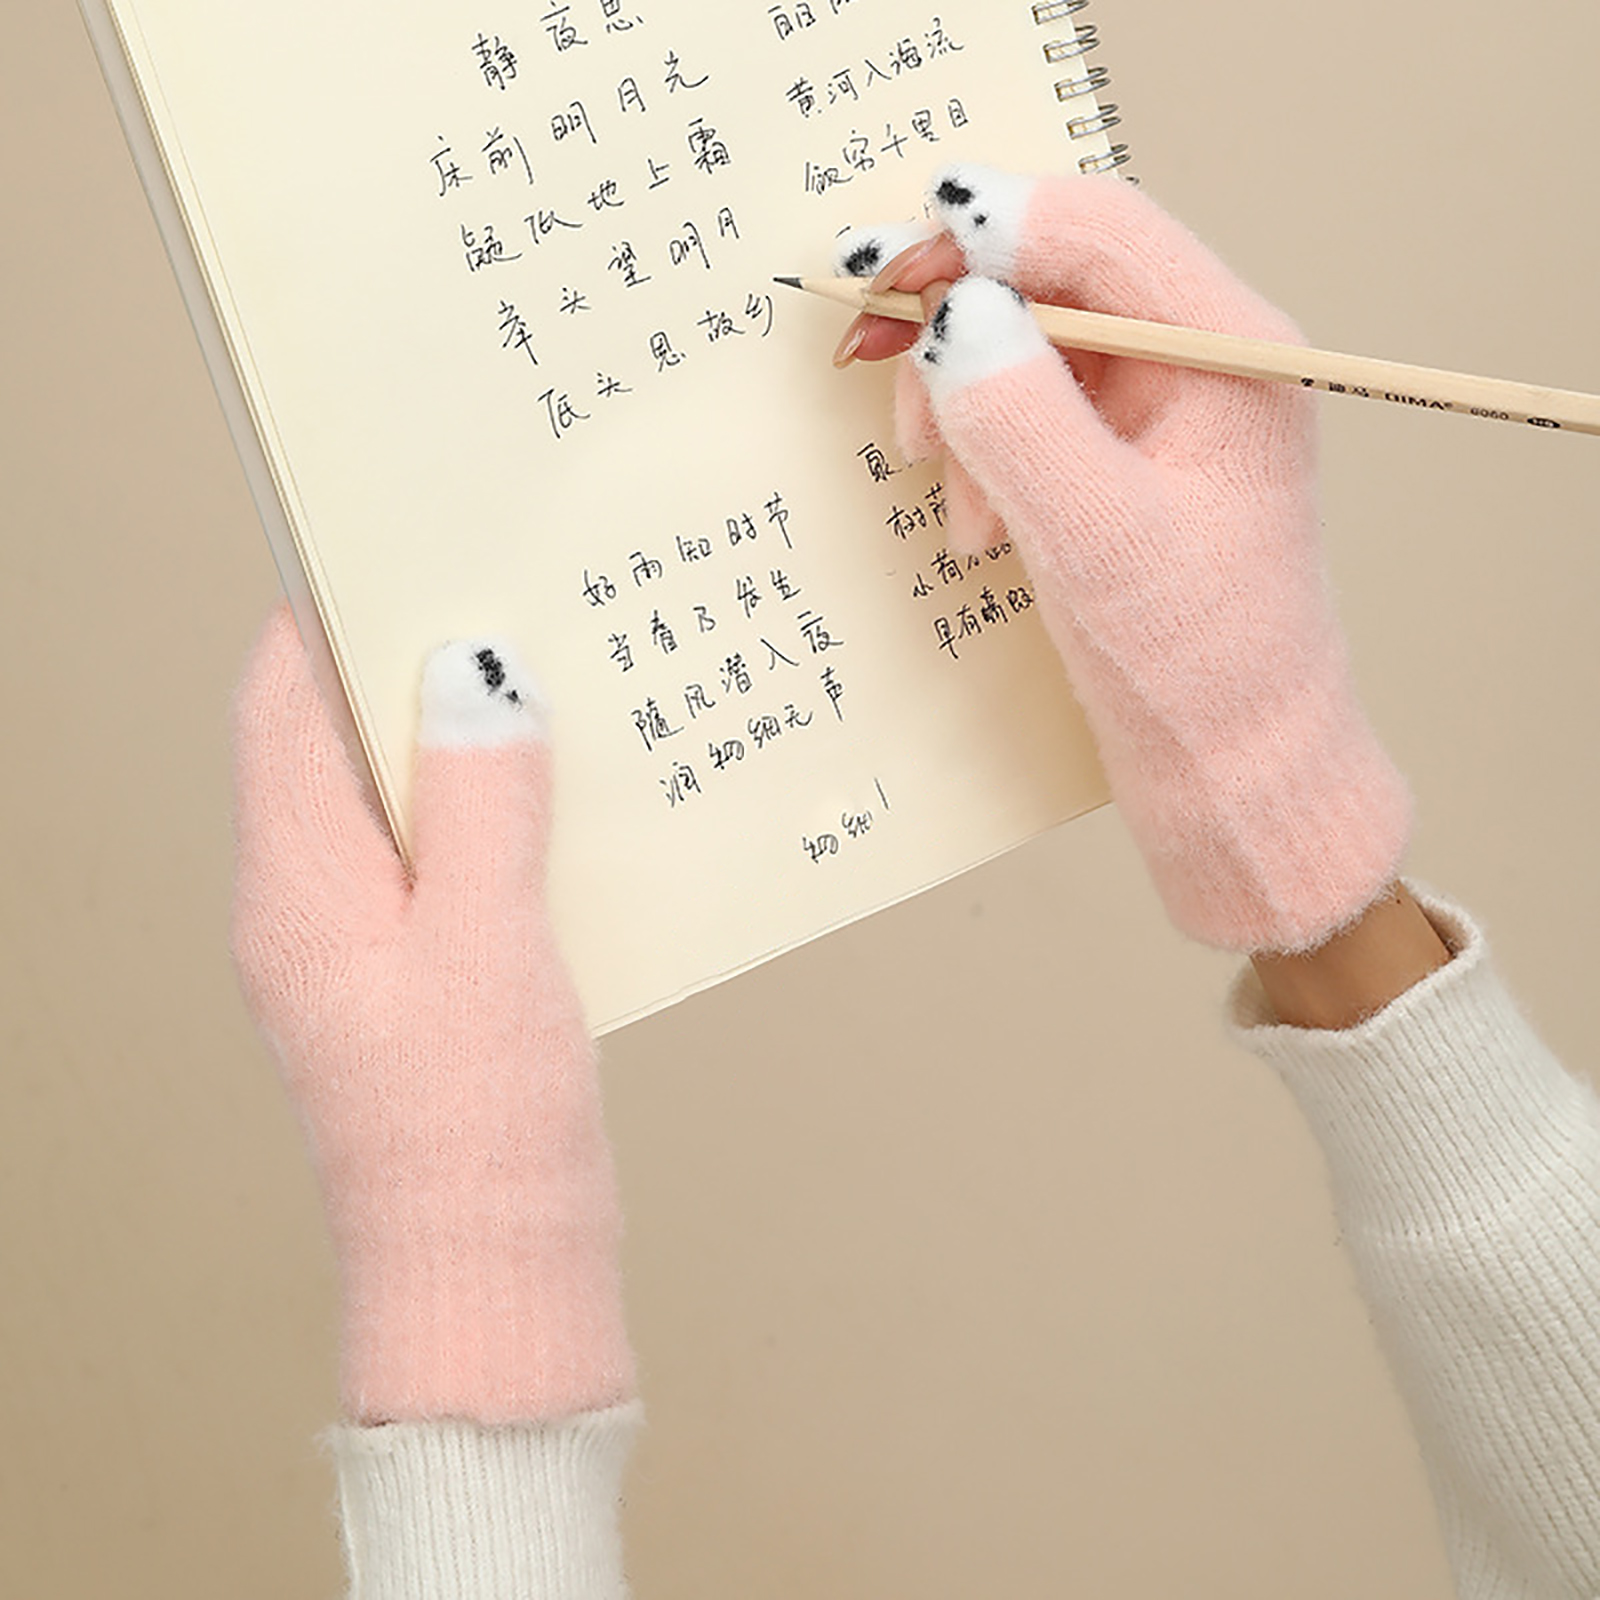 静夜思
床前明月光
疑似地上霜
举头望明月
底头思故乡
黄河入海流
欲穷千里目
好雨知时节
当春乃发生
随风潜入夜
润物细无声
物细
树荫
小荷
早有蜻
迪马 DIMA® 6060 HB